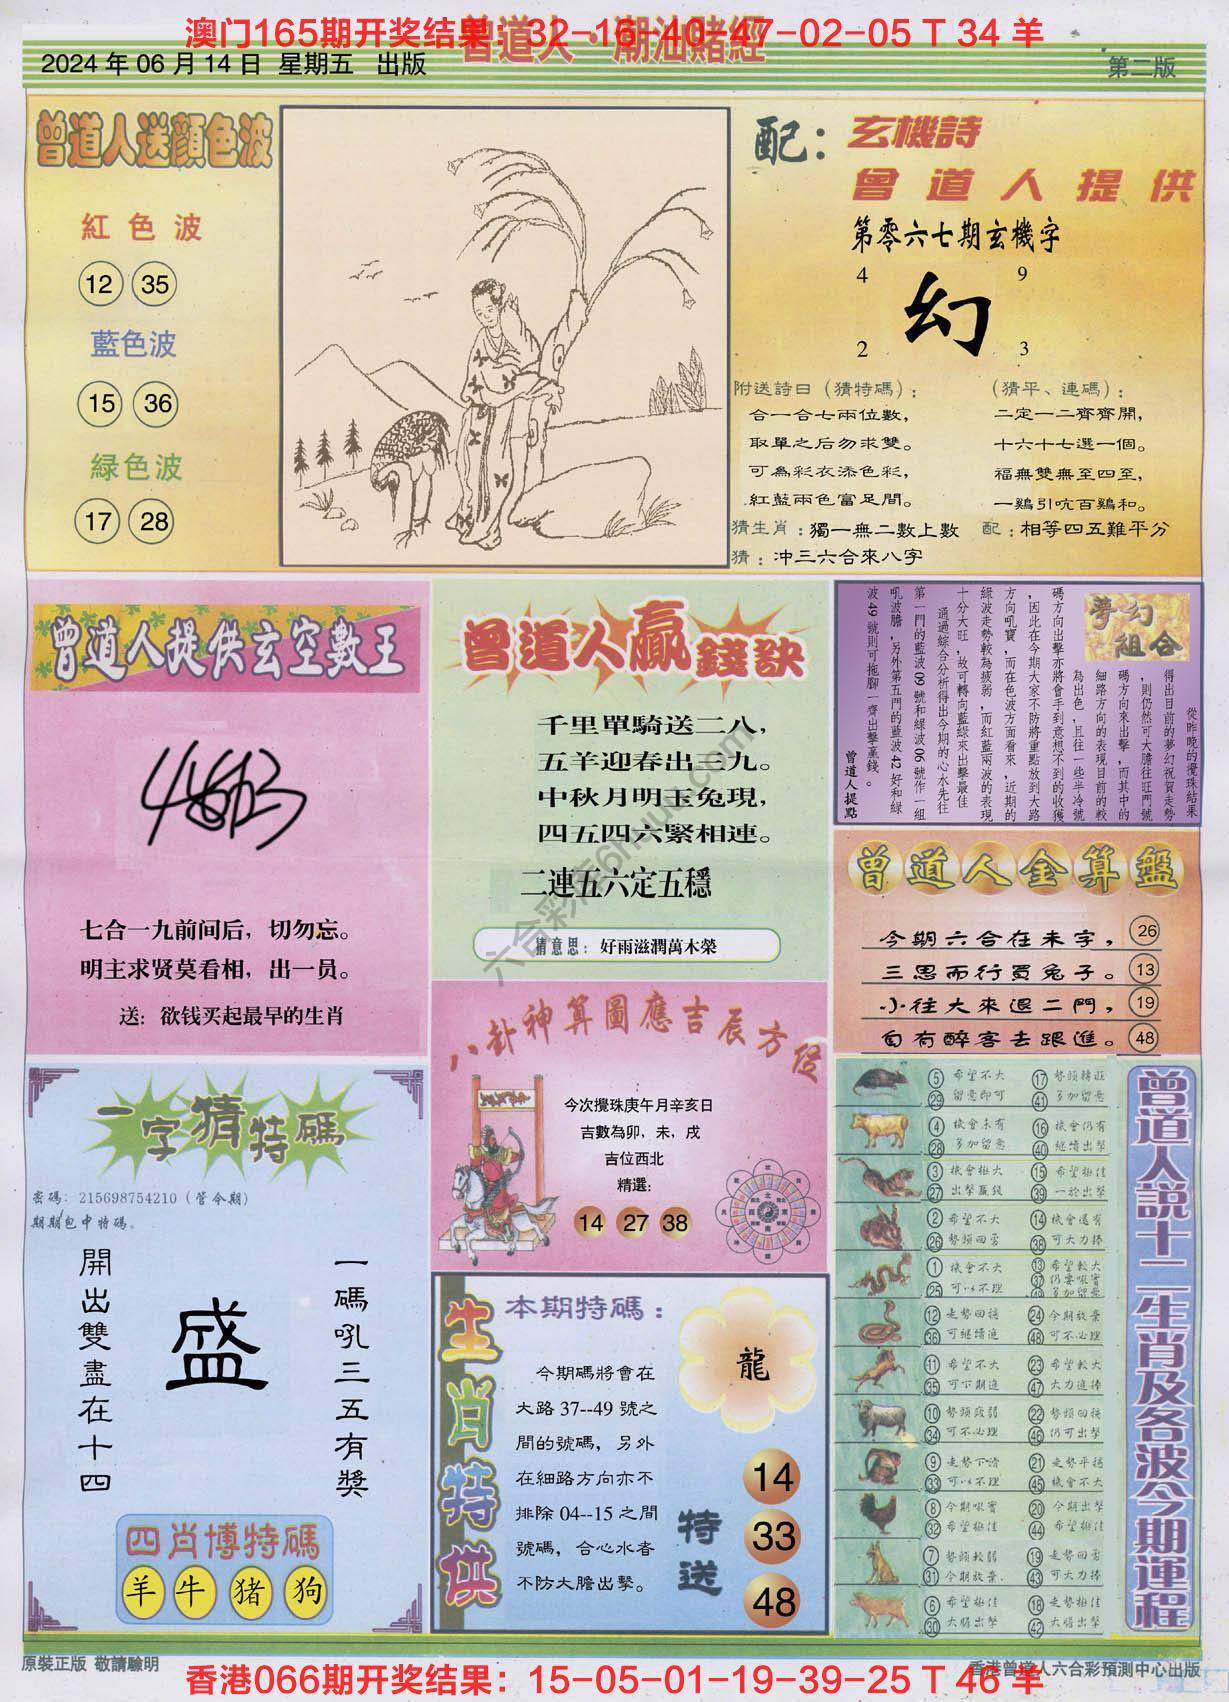 澳门165期开奖结果：32-16-40-47-02-05 T 34 羊
曾道人·潮汕賭經
2024 年 06 月 14 日 星期五 出版
第二版
曾道人送顔色波
紅色波
12 35
藍色波
15 36
緑色波
17 28
配：玄機詩
曾道人提供
第零六七期玄機字
4 9
幻
2 3
附送詩曰（猜特碼）：
合一合七兩位數，
取單之后勿求雙。
可為彩衣添色彩，
紅藍兩色富足間。
（猜平、連碼）：
二定一二齊齊開，
十六十七選一個。
福無雙無至四至，
一鷄引吭百鷄和。
猜生肖：獨一無二數上數 配：相等四五難平分
猜：冲三六合來八字
曾道人提供玄空數王
七合一九前间后，切勿忘。
明主求贤莫看相，出一员。
送：欲钱买起最早的生肖
曾道人贏錢訣
千里單騎送二八，
五羊迎春出三九。
中秋月明玉兔現，
四五四六緊相連。
二連五六定五穩
猜意思：好雨滋潤萬木榮
夢幻組合
從昨晚的攪珠結果
得出目前的夢幻祝賀走勢
，則仍然可大膽往旺門號
碼方向來出擊，而其中的
細路方向的表現目前的較
為出色，且往一些半冷號
碼方向出擊亦將會手到意想不到的收獲
，因此在今期大家不防將重點放到大路
方向吼寶，而在色波方面看來，近期的
綠波走勢較為疲弱，而紅藍兩波的表現
十分大旺，故可轉向藍綠來出擊最佳
通過綜合分析得出今期的心水先往
第一門的藍波 09 號和綠波 06 號作一組
吼波膽，另外第五門的藍波 42 好和綠
波 49 號則可拖腳一齊出擊贏錢。
曾道人提點
曾道人金算盤
今期六合在未字， 26
三思而行買兔子。 13
小往大來退二門， 19
自有醉客去跟進。 48
八卦神算圖應吉辰方位
今次攪珠庚午月辛亥日
吉數為卯，未，戌
吉位西北
精選：
14 27 38
一字猜特碼
密碼：215698754210（管令期）
期期包中特碼。
一碼吼三五有獎
盛
開出雙盡在十四
四肖博特碼
羊 牛 猪 狗
生肖特供
本期特碼：
龍
今期碼將會在
大路 37--49 號之
間的號碼，另外
在細路方向亦不
排除 04--15 之間
號碼，合心水者
不防大膽出擊。
特送
14
33
48
曾道人說十二生肖及各波今期運程
5 希望不大 17 勢頭轉旺
29 留意即可 41 多加留意
4 機會未有 16 機會仍有
28 多加留意 40 繼續出擊
3 機會推大 15 希望推佳
27 出擊贏錢 39 一於出擊
2 希望不大 14 機會還有
26 勢頭回勇 38 可大力捧
1 機會不大 13 希望較大
25 可以不理 37 仍要吼實
多加留意
12 走勢回穩 24 今期放棄
36 可繼續追 48 可不必理
11 希望不大 23 希望較大
35 可下期追 47 大力追捧
10 勢頭疲弱 22 勢頭回穩
34 可不必理 46 仍可出擊
9 走勢下滑 21 走勢平穩
33 可以不理 45 機會不大
8 今期吼實 20 今期出擊
32 希望推佳 44 希望推佳
7 勢頭較弱 19 走勢回勇
31 今期放棄. 43 可大力捧
6 希望推佳 18 走勢推佳
30 大膽出擊 42 大膽出擊
六合彩库6huuu.com
原裝正版 敬請驗明
香港曾道人六合彩預測中心出版
香港066期开奖结果：15-05-01-19-39-25 T 46 羊